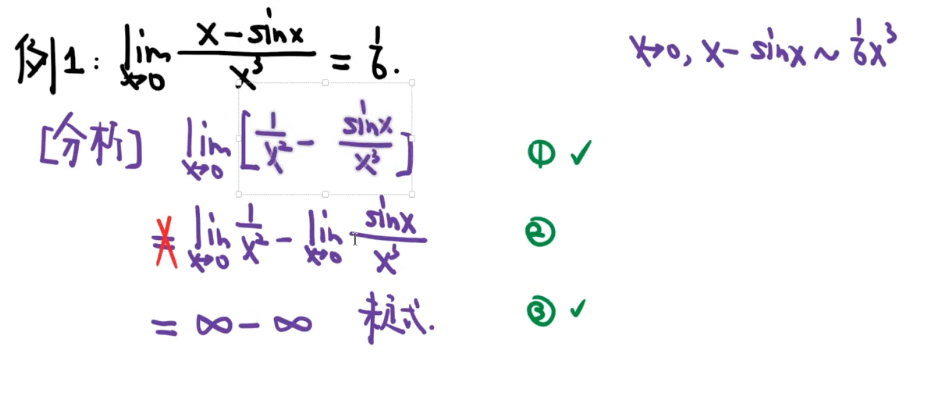 例1: lim x→0 (x-sinx)/x³ = 1/6.
x→0, x-sinx ~ 1/6 x³
[分析] lim x→0 [1/x² - sinx/x³] ① ✓
= lim x→0 1/x² - lim x→0 sinx/x³ ②
= ∞-∞ 未定式. ③ ✓